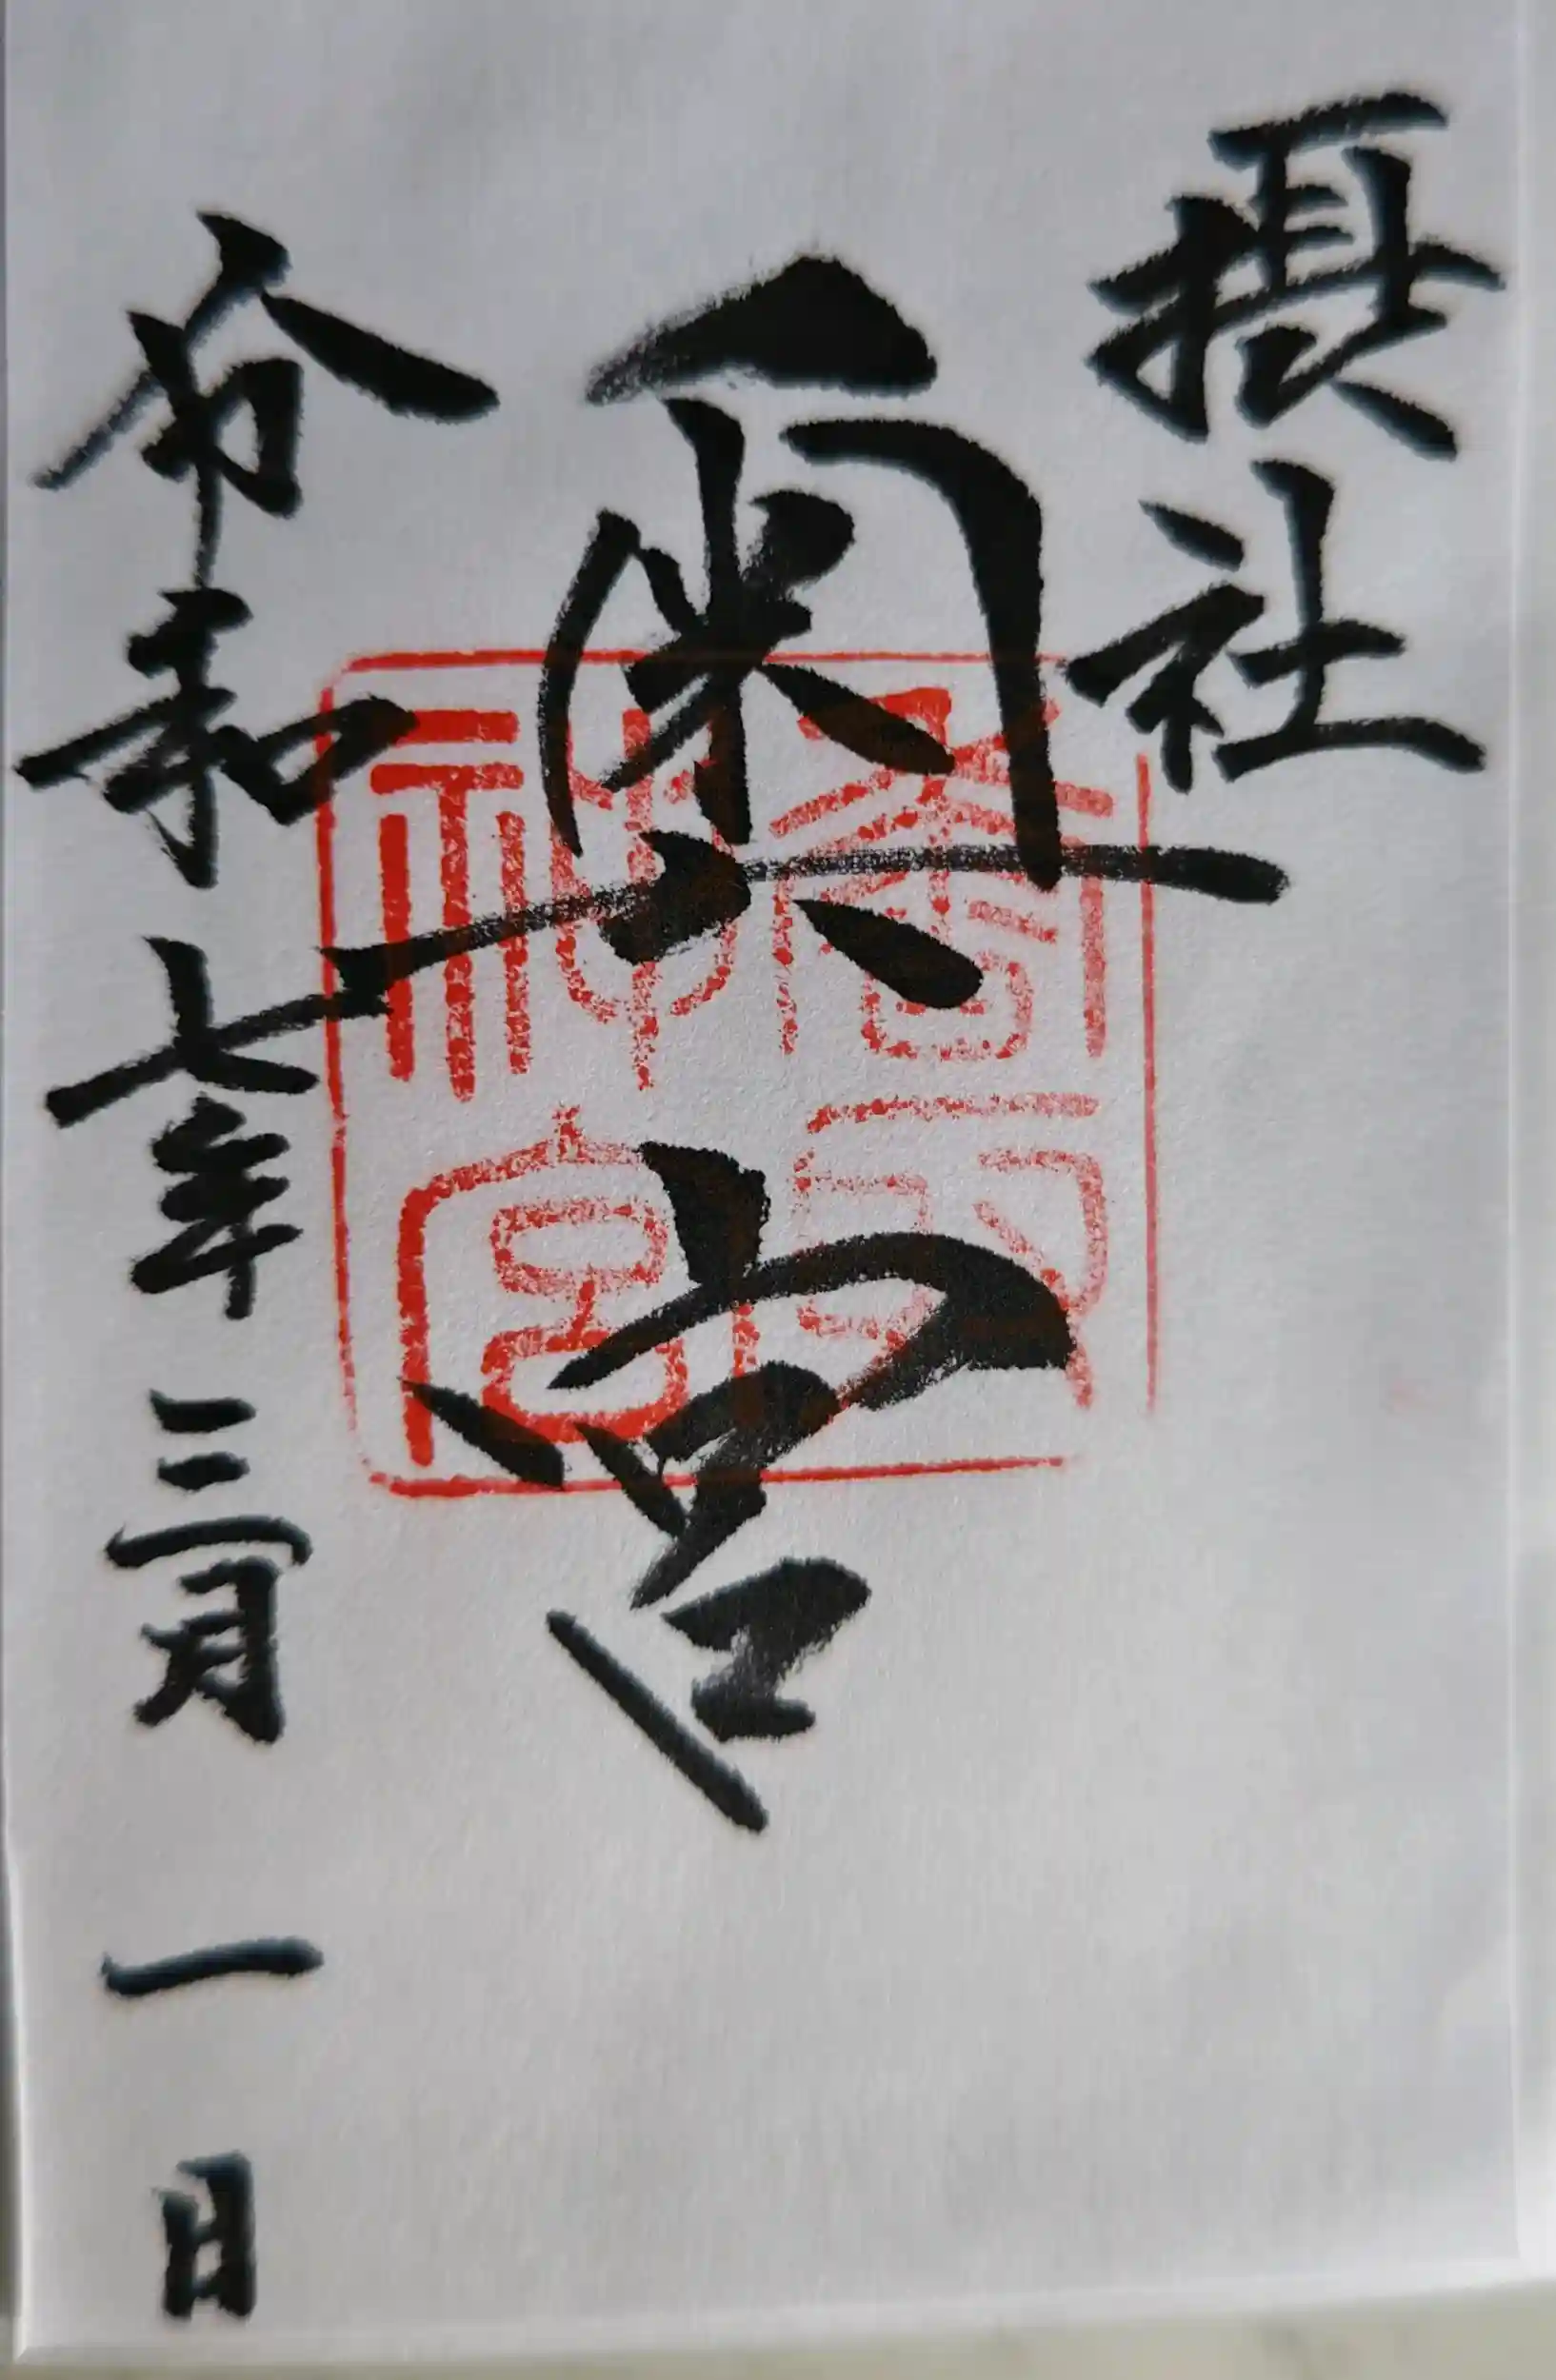 摂社
奥宮
令和七年三月一日